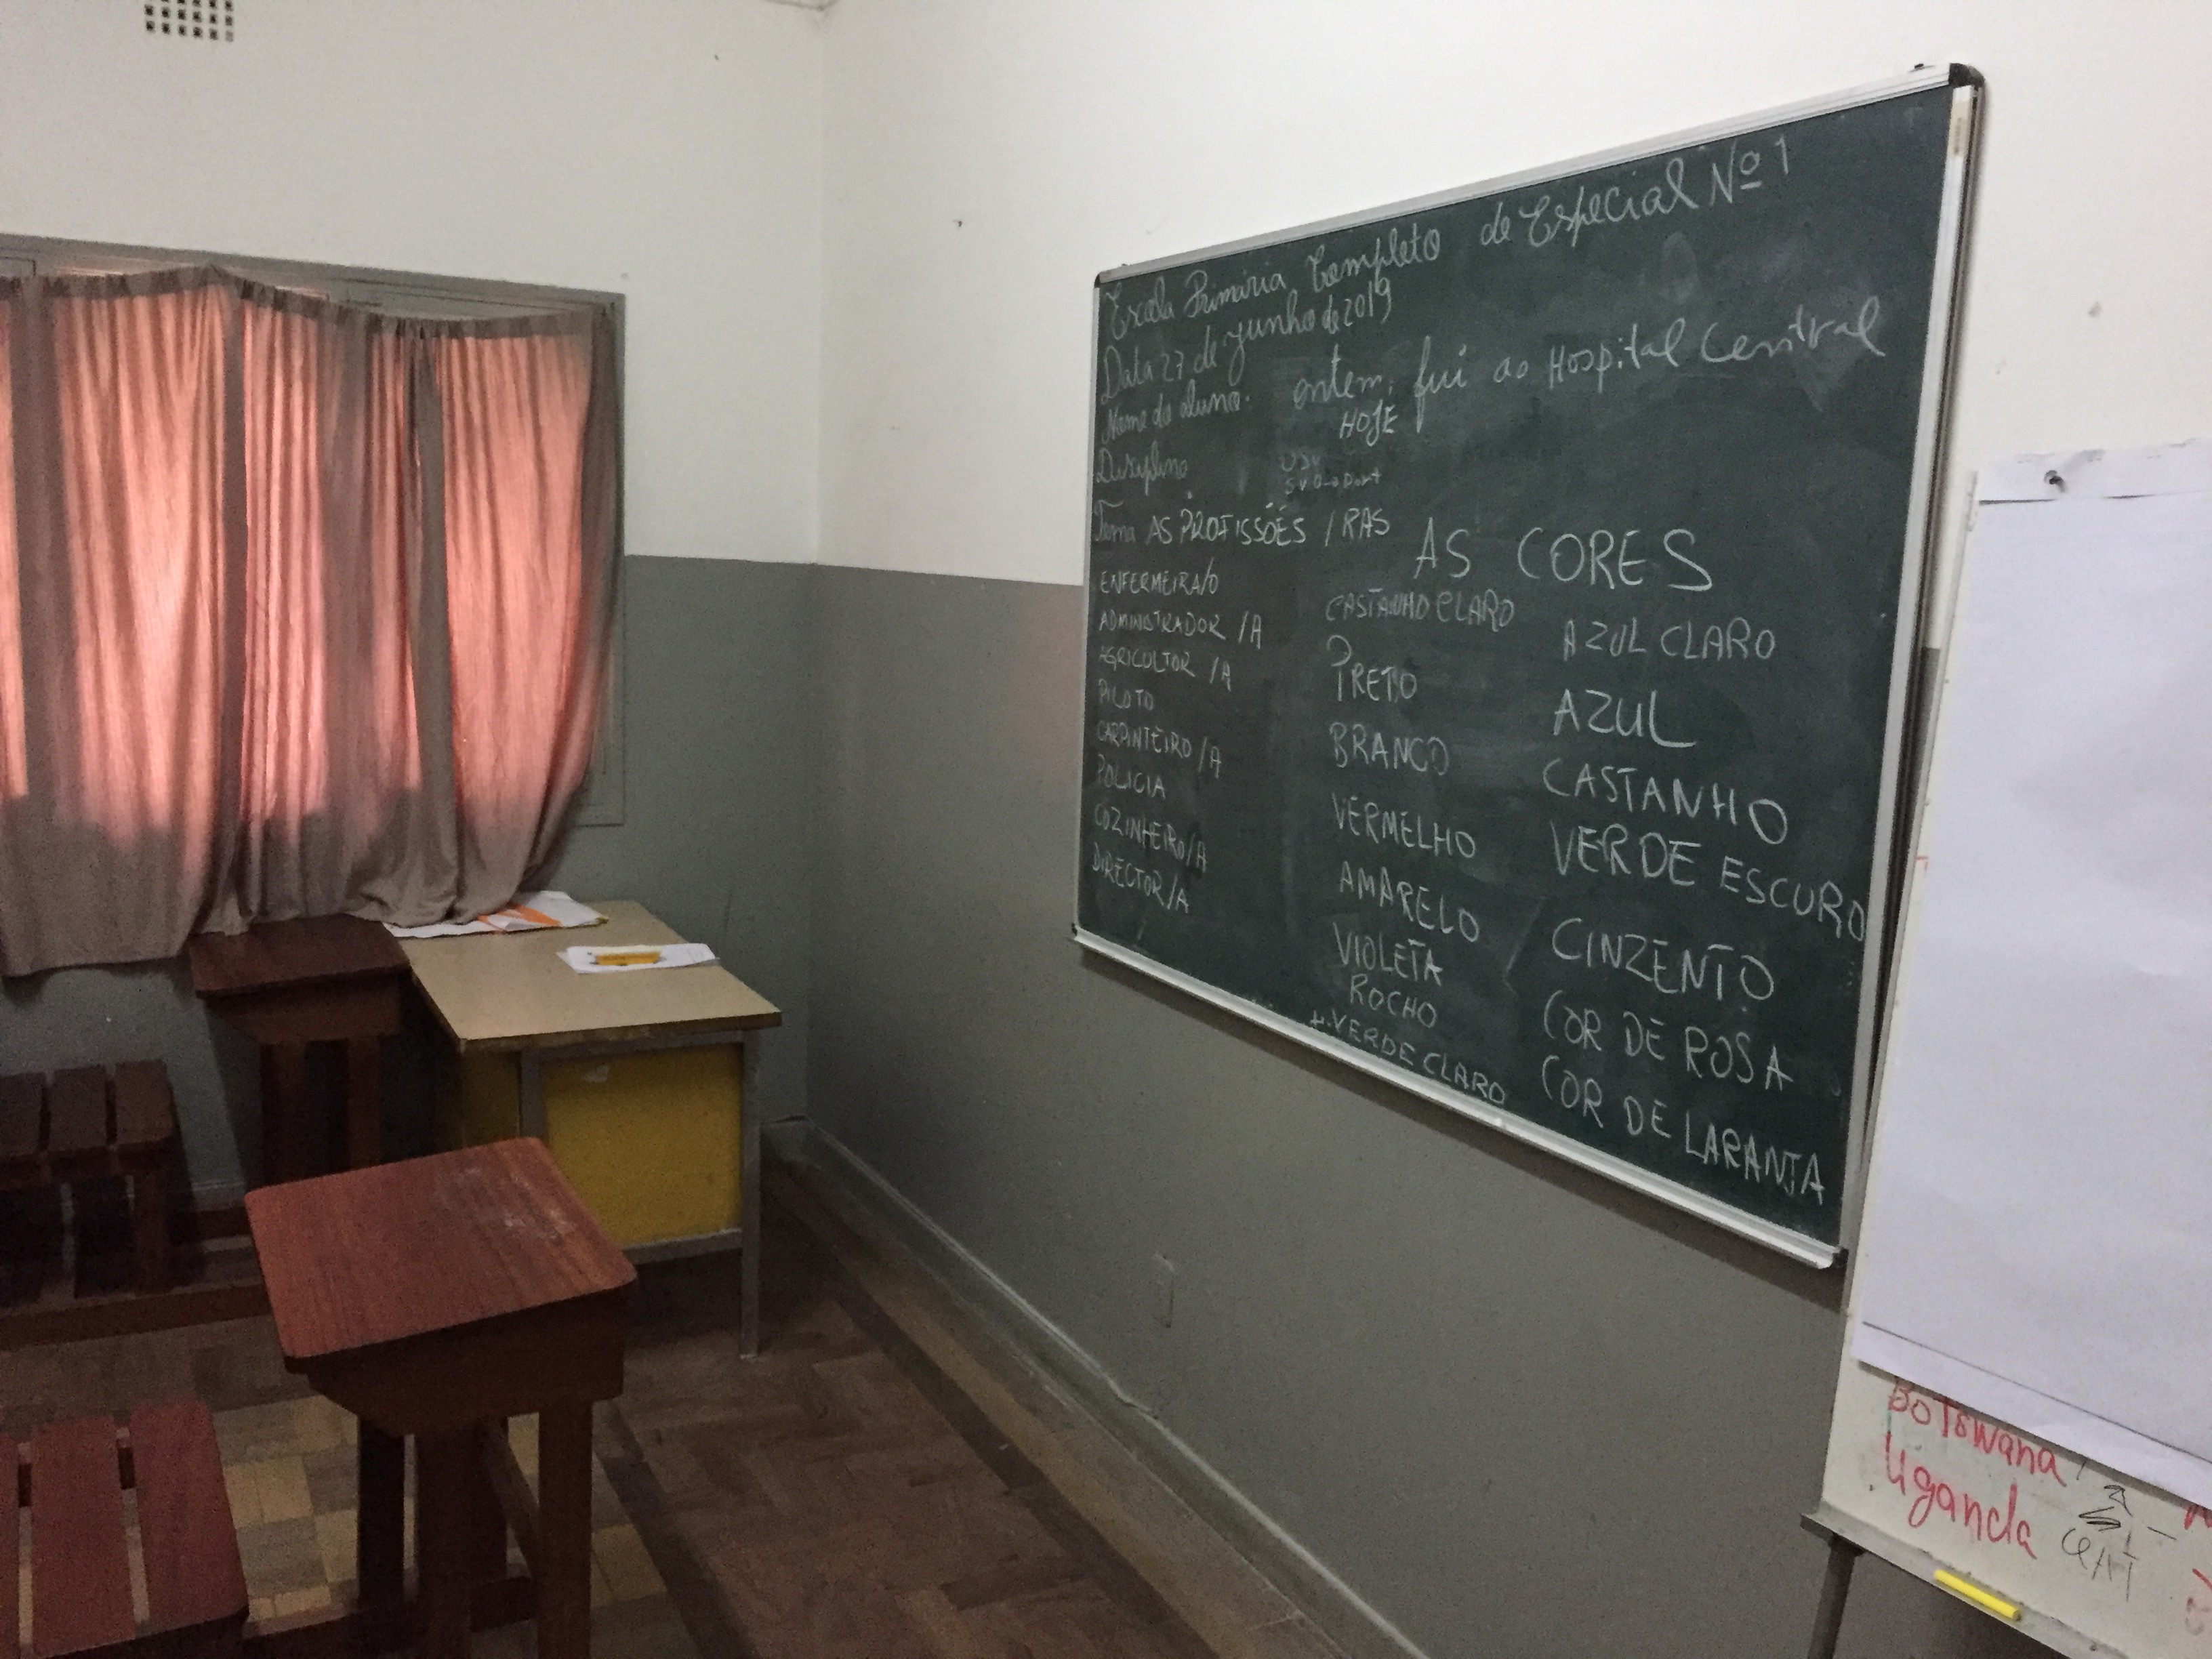 Escola Primária Completo de Especial Nº 1
Data 27 de junho de 2019
Nome do aluno.
ontem, fui ao Hospital Central
HOJE
Disciplina
Tema AS PROFISSÓES / RAS
ENFERMEIRA/O
ADMINISTRADOR /A
AGRICULTOR /A
PILOTO
CARPINTEIRO /A
POLICIA
COZINHEIRO/A
DIRECTOR/A
AS CORES
CASTANHO CLARO
PRETO
BRANCO
VERMELHO
AMARELO
VIOLETA
ROCHO
VERDE CLARO
AZUL CLARO
AZUL
CASTANHO
VERDE ESCURO
CINZENTO
COR DE ROSA
COR DE LARANJA
Botswana
Uganda